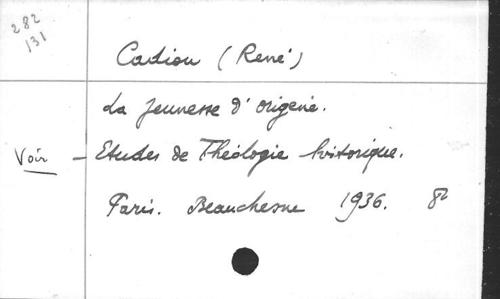 282
131
Cadiou (René)
La Jeunesse d'Origène.
Voir - Etudes de Théologie historique.
Paris. Beauchesne 1936. 8º